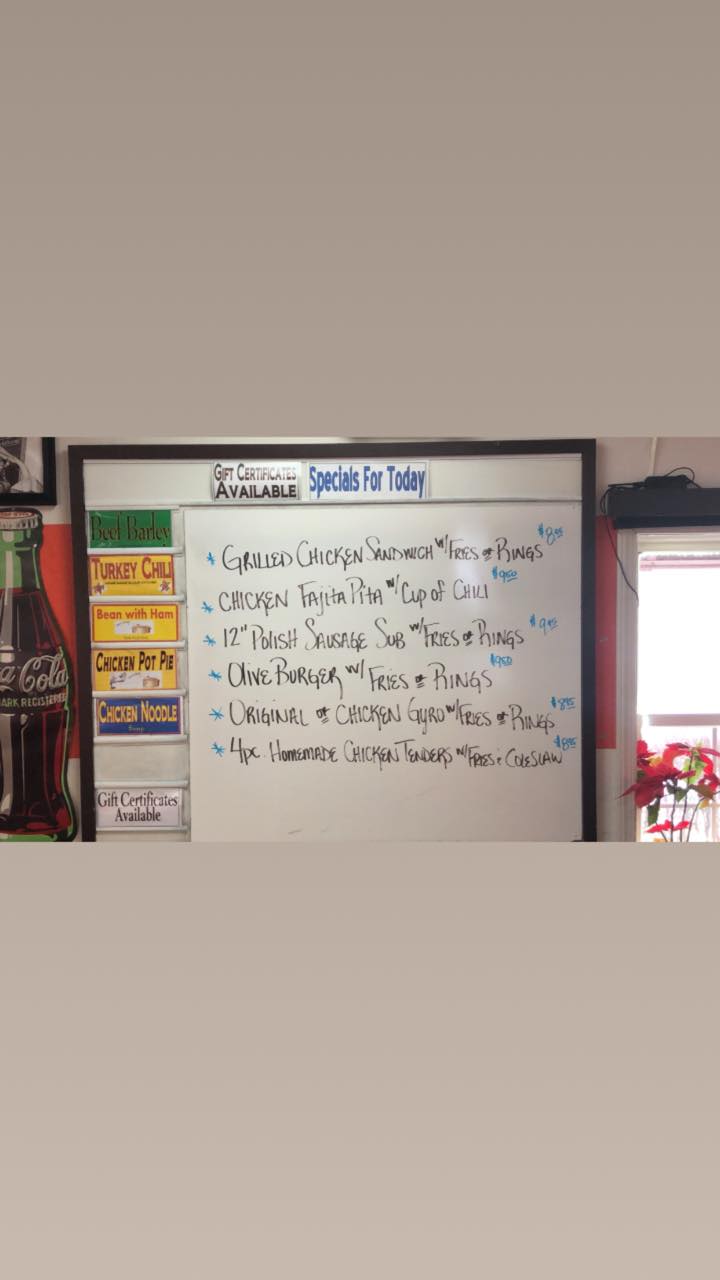 GIFT CERTIFICATES
AVAILABLE
Specials For Today
Beef Barley
TURKEY CHILI
Bean with Ham
CHICKEN POT PIE
CHICKEN NOODLE
Soup
Gift Certificates
Available
* GRILLED CHICKEN SANDWICH W/ FRIES or RINGS
* CHICKEN FAJITA PITA W/ CUP OF CHILI $9.50
* 12" POLISH SAUSAGE SUB W/ FRIES or RINGS
* OLIVE BURGER W/ FRIES or RINGS $9.50
* ORIGINAL or CHICKEN GYRO W/ FRIES or RINGS $8.95
* 4pc. HOMEMADE CHICKEN TENDERS W/ FRIES & COLESLAW $8.95
a-Cola
ARK REGISTERED